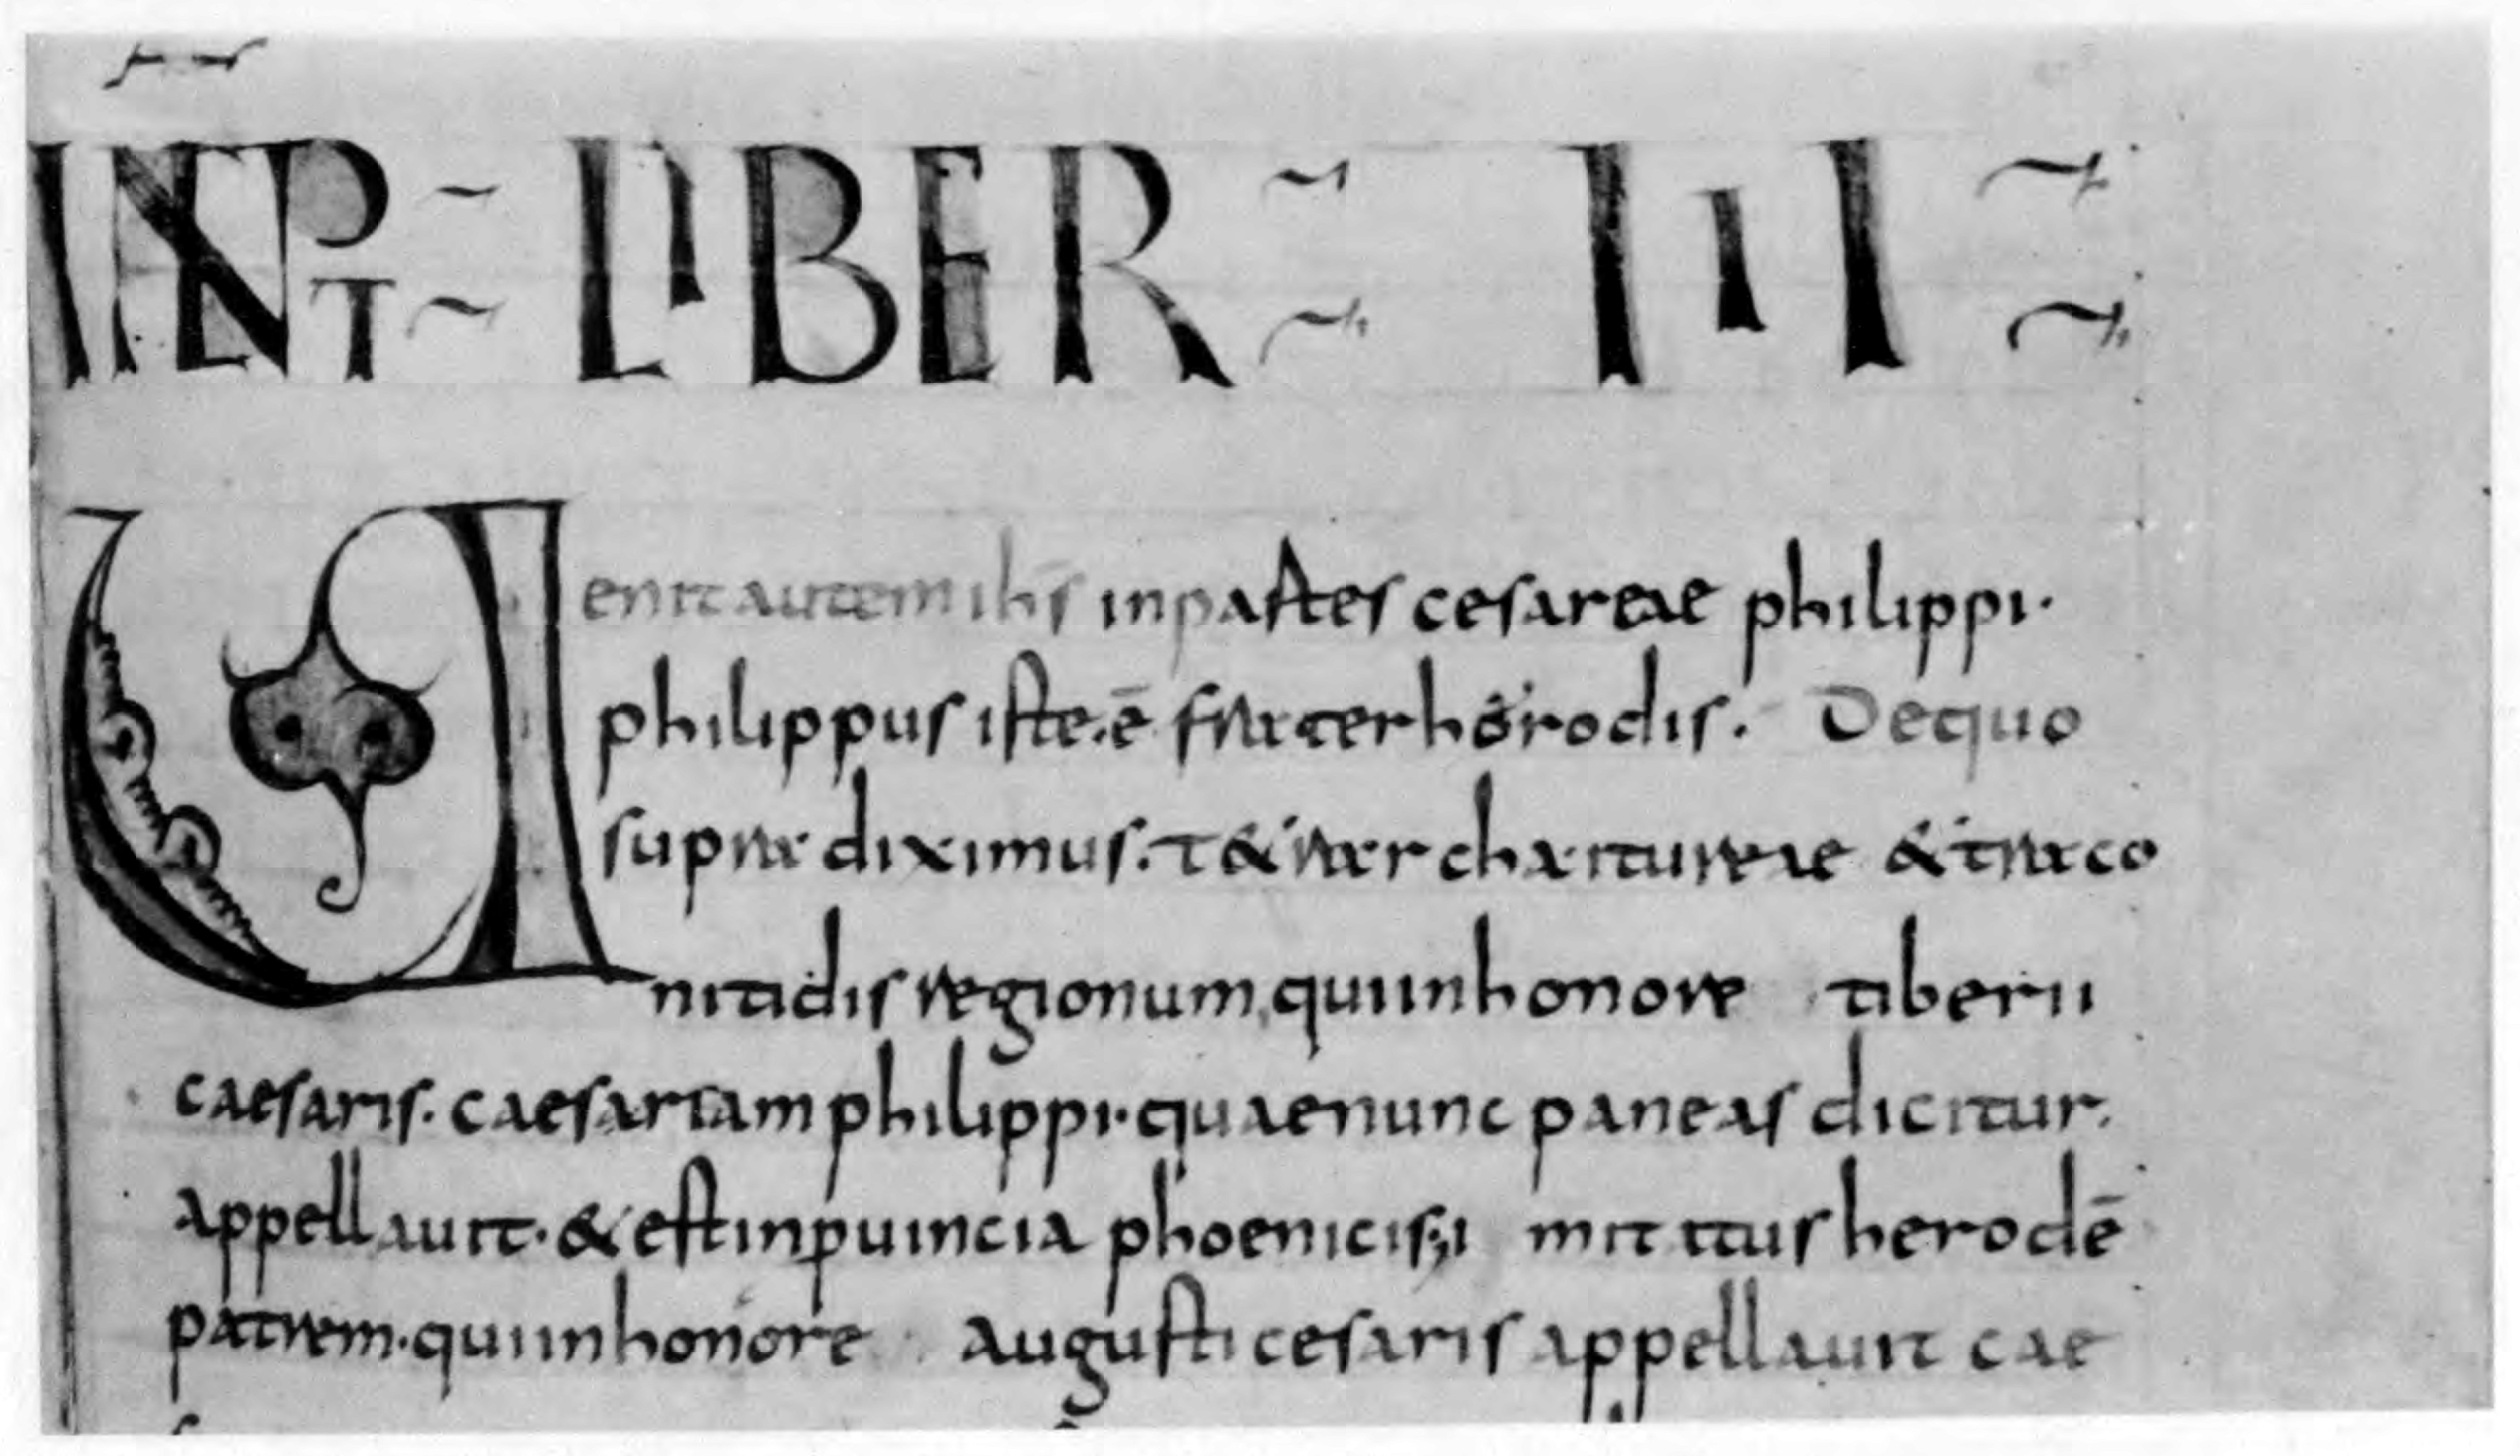 INCPT LIBER III
Uenit autem ihs̄ in partes cesareae philippi·
philippus iste·ē frater herodis· De quo
supra diximus·tetrarcha itureae & traco
nitidis regionum, qui in honore tiberii
caesaris·caesariam philippi·quae nunc paneas dicitur·
appellauit·& est in ꝓuincia phoenicis; imitatus herodē
patrem·qui in honore augusti cesaris appellauit cae